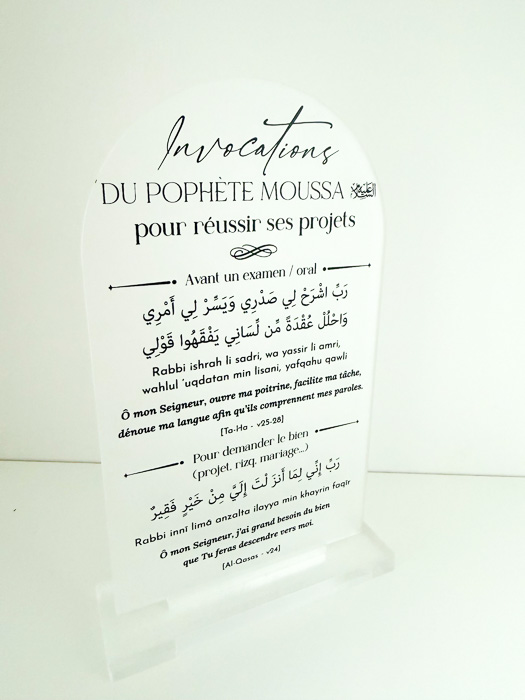 Invocations
DU POPHÈTE MOUSSA عليه السلام
pour réussir ses projets
Avant un examen / oral
رَبِّ اشْرَحْ لِي صَدْرِي وَيَسِّرْ لِي أَمْرِي
وَاحْلُلْ عُقْدَةً مِّن لِّسَانِي يَفْقَهُوا قَوْلِي
Rabbi ishrah li sadri, wa yassir li amri,
wahlul 'uqdatan min lisani, yafqahu qawli
Ô mon Seigneur, ouvre ma poitrine, facilite ma tâche,
dénoue ma langue afin qu'ils comprennent mes paroles.
[Ta-Ha - v25-28]
Pour demander le bien
(projet, rizq, mariage...)
رَبِّ إِنِّي لِمَا أَنزَلْتَ إِلَيَّ مِنْ خَيْرٍ فَقِيرٌ
Rabbi innî limâ anzalta ilayya min khayrin faqîr
Ô mon Seigneur, j'ai grand besoin du bien
que Tu feras descendre vers moi.
[Al-Qasas - v24]